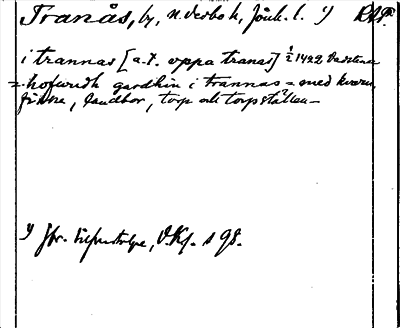 Tranås, by, N. Vedbo h, Jönk. l. 1) RAP.
i trannas [a.t. uppa tranas] 1/2 1422 Vadstena
= hofwudh gardhin i trannas = med kvarn,
fiske, landbor, torp och torpställen –
1) Jfr. Silfverstolpe, V.Kl. s 98.